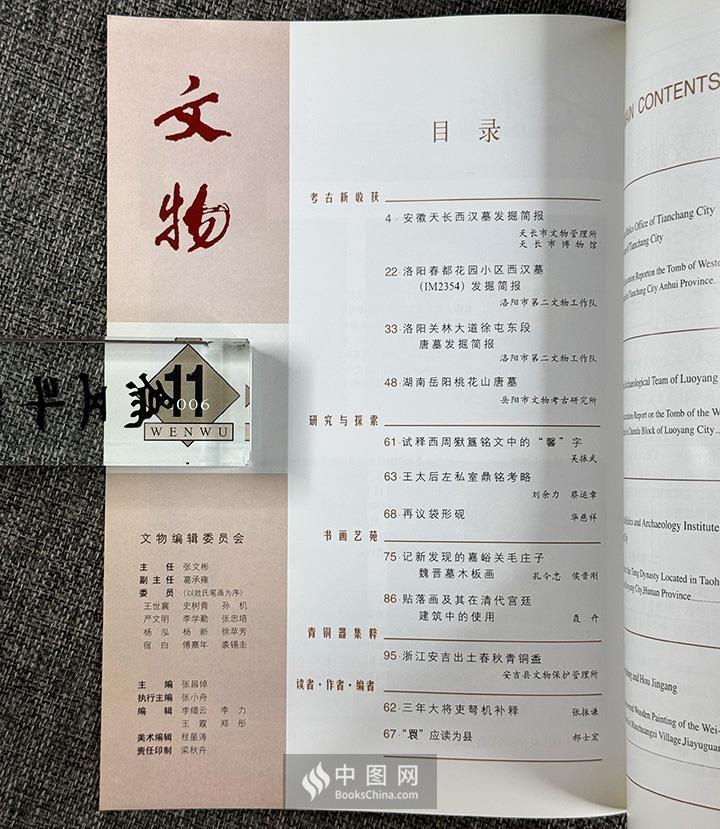 文物
11
2006
WENWU
文物编辑委员会
主 任 张文彬
副主任 葛承雍
委 员 (以姓氏笔画为序)
王世襄 史树青 孙 机
严文明 李学勤 张忠培
杨 泓 杨 新 徐苹芳
宿 白 傅熹年 裘锡圭
主 编 张昌倬
执行主编 张小舟
编 辑 李缙云 李 力
王 霞 郑 彤
美术编辑 程星涛
责任印制 梁秋卉
目 录
考古新收获
4·安徽天长西汉墓发掘简报
天长市文物管理所
天长市博物馆
22·洛阳春都花园小区西汉墓
(IM2354)发掘简报
洛阳市第二文物工作队
33·洛阳关林大道徐屯东段
唐墓发掘简报
洛阳市第二文物工作队
48·湖南岳阳桃花山唐墓
岳阳市文物考古研究所
研究与探索
61·试释西周狱簋铭文中的“馨”字
吴振武
63·王太后左私室鼎铭考略
刘余力 蔡运章
68·再议袋形砚 华慈祥
书画艺苑
75·记新发现的嘉峪关毛庄子
魏晋墓木板画 孔令忠 侯晋刚
86·贴落画及其在清代宫廷
建筑中的使用 聂卉
青铜器集粹
95·浙江安吉出土春秋青铜盉
安吉县文物保护管理所
读者·作者·编者
62·三年大将吏弩机补释 张振谦
67·“瞏”应读为县 郝士宏
中图网
BooksChina.com
AIN CONTENTS
Relics Office of Tianchang City
of Tianchang City
cavation Report on the Tomb of Weste
Tianchang City Anhui Province
Archaeological Team of Luoyang
cavation Report on the Tomb of the W
Chundu Block of Luoyang City
Relics and Archaeology Institute
the Tang Dynasty Located in Taoh
yang City, Hunan Province
and Hou Jingang
ered Wooden Painting of the Wei-
Maozhuangzi Village Jiayuguan